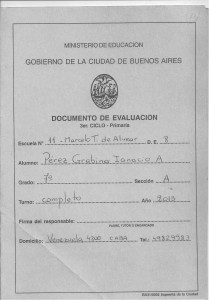 MINISTERIO DE EDUCACIÓN
GOBIERNO DE LA CIUDAD DE BUENOS AIRES
DOCUMENTO DE EVALUACIÓN
3er. CICLO - Primaria
Escuela Nº 11 - Marcelo T. de Alvear D.E. 8
Alumno: Perez Grabina Ignacio A
Grado: 7º Sección: A
Turno: completo Año 2013
Firma del responsable:
PADRE, TUTOR O ENCARGADO
Domicilio: Venezuela 4200 CABA Tel.: 49829983